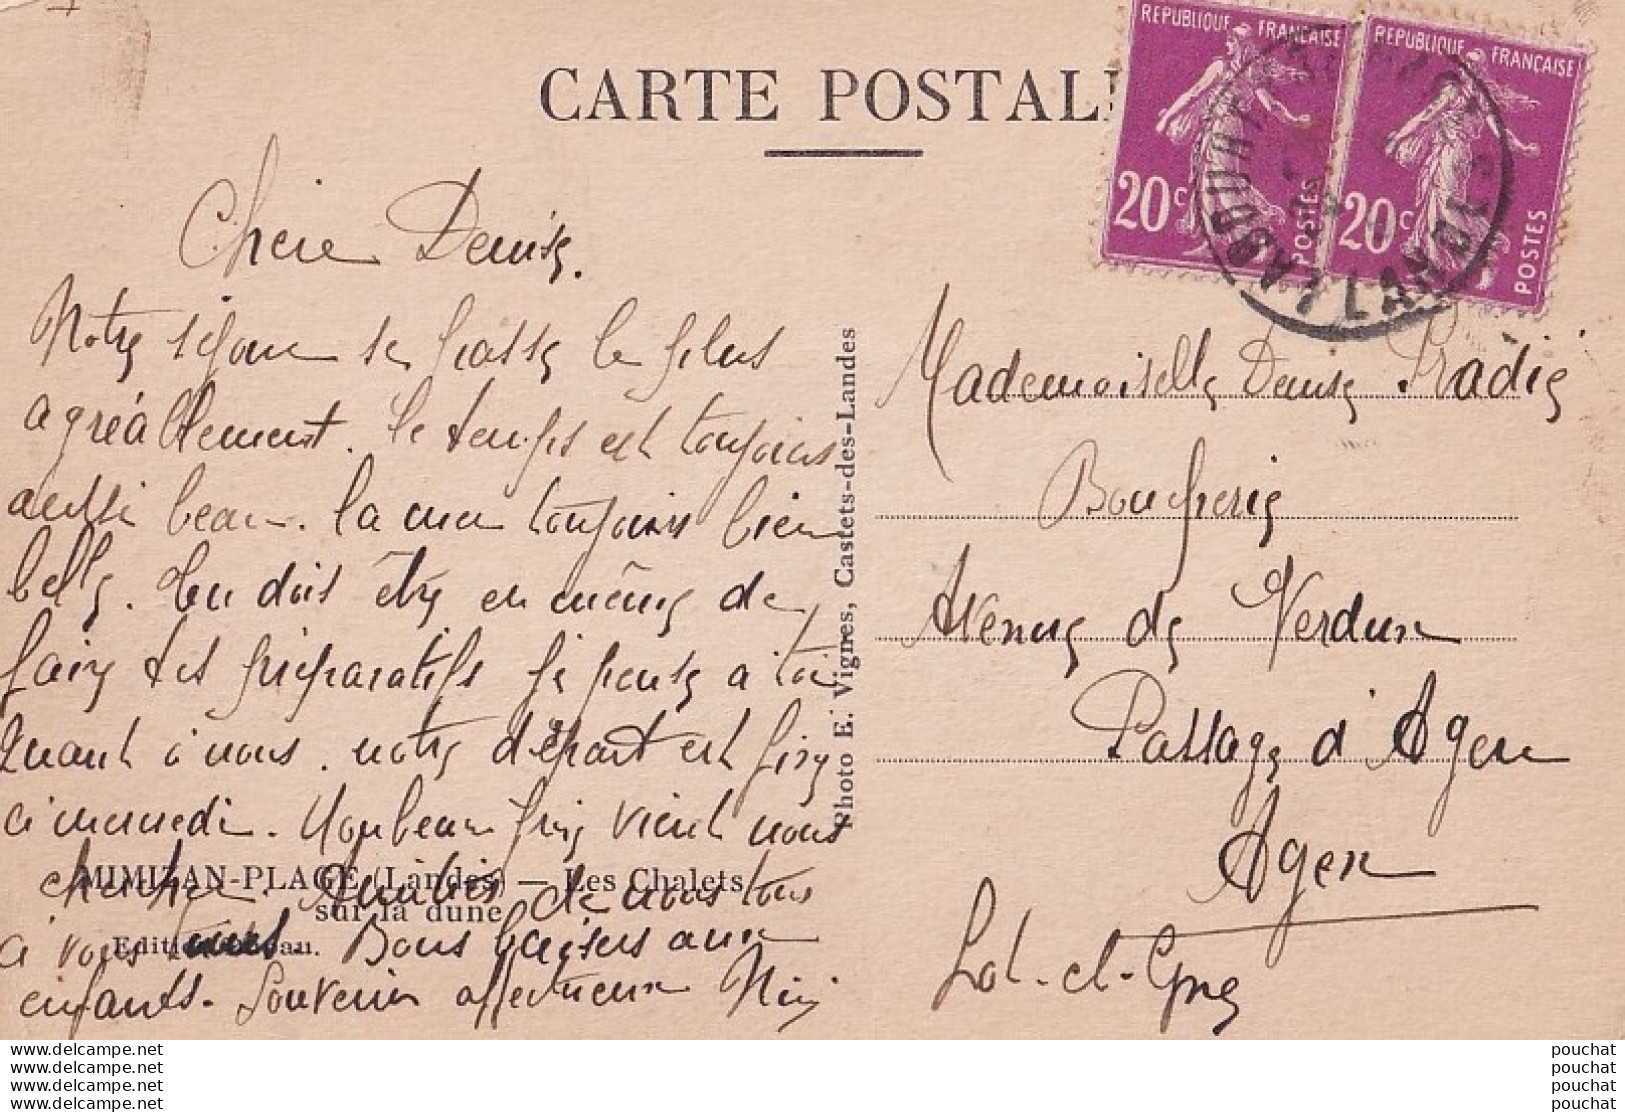 CARTE POSTALE
REPUBLIQUE FRANÇAISE
20c POSTES
REPUBLIQUE FRANÇAISE
20c POSTES
Chere Denise.
Notre séjour se passe le plus
agréablement. le temps est toujours
aussi beau. la mer toujours bien
belle. tu dois être en même de
faire tes préparatifs je pense a toi
Quant à nous. notre départ est fixé
a mercredi. Mon beau frère vient nous
chercher. Amitiés de nous tous
a vous tous. Bons baisers aux
enfants. Souvenir affectueux Nini
MIMIZAN-PLAGE (Landes) — Les Chalets
sur la dune
Photo E. Vignes, Castets-des-Landes
Mademoiselle Denise Pradié
Boucherie
Avenue de Verdun
Passage d'Agen
Agen
Lot-et-Gne
www.delcampe.net
www.delcampe.net
www.delcampe.net
www.delcampe.net
pouchat
pouchat
pouchat
pouchat